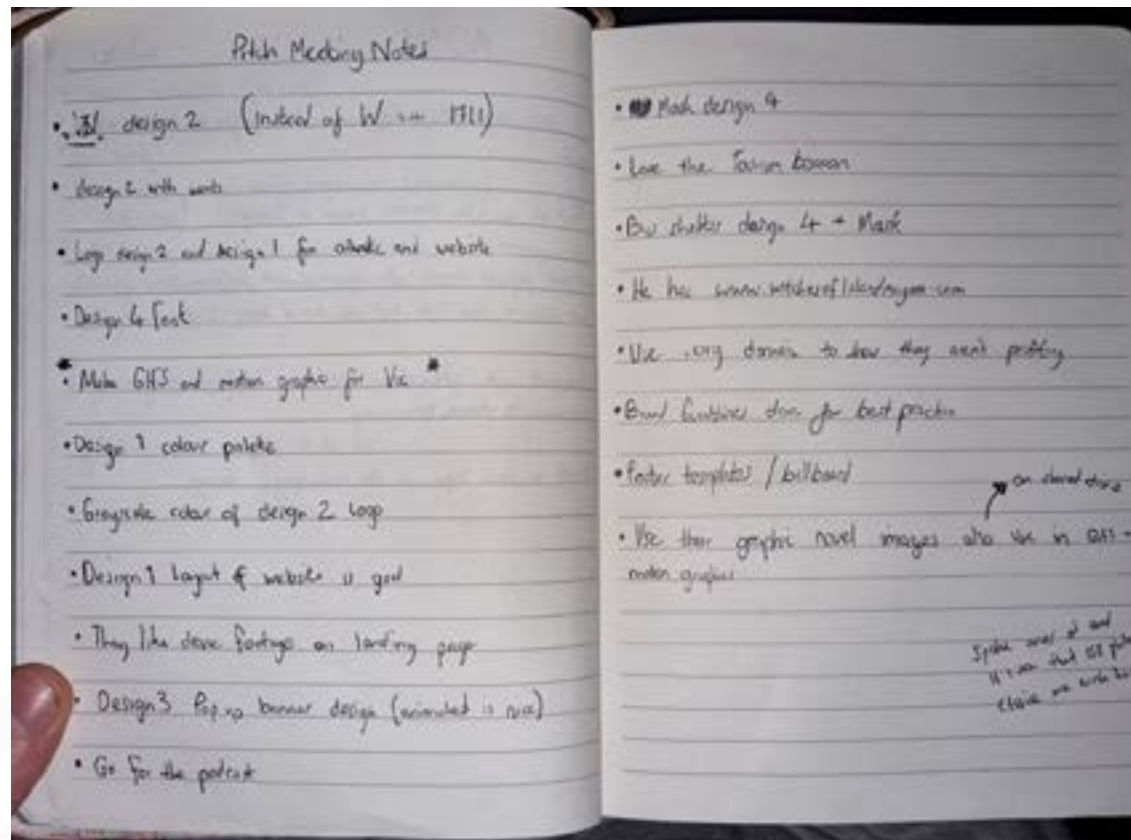 Pitch Meeting Notes
• design 2 (instead of W 1711)
• design 2 with words
• Logo design 2 and design 1 for and website
• Design 4 font
• Make GIFS and motion graphic for Vic
• Design 1 colour palete
• Greyscale colour of design 2 logo
• Design 1 layout of website is good
• They like drone footage on landing page
• Design 3 Pop up banner design (animated is nice)
• Go for the podcast
• Mock design 4
• Love the
• Bus shelter design 4 + Mask
• He has
• Use .org domain to show they aren't profiting
• Brand guidelines for best practice
• Poster templates / billboard
on shared drive
• Use their graphic novel images also use in GIFS +
motion graphics